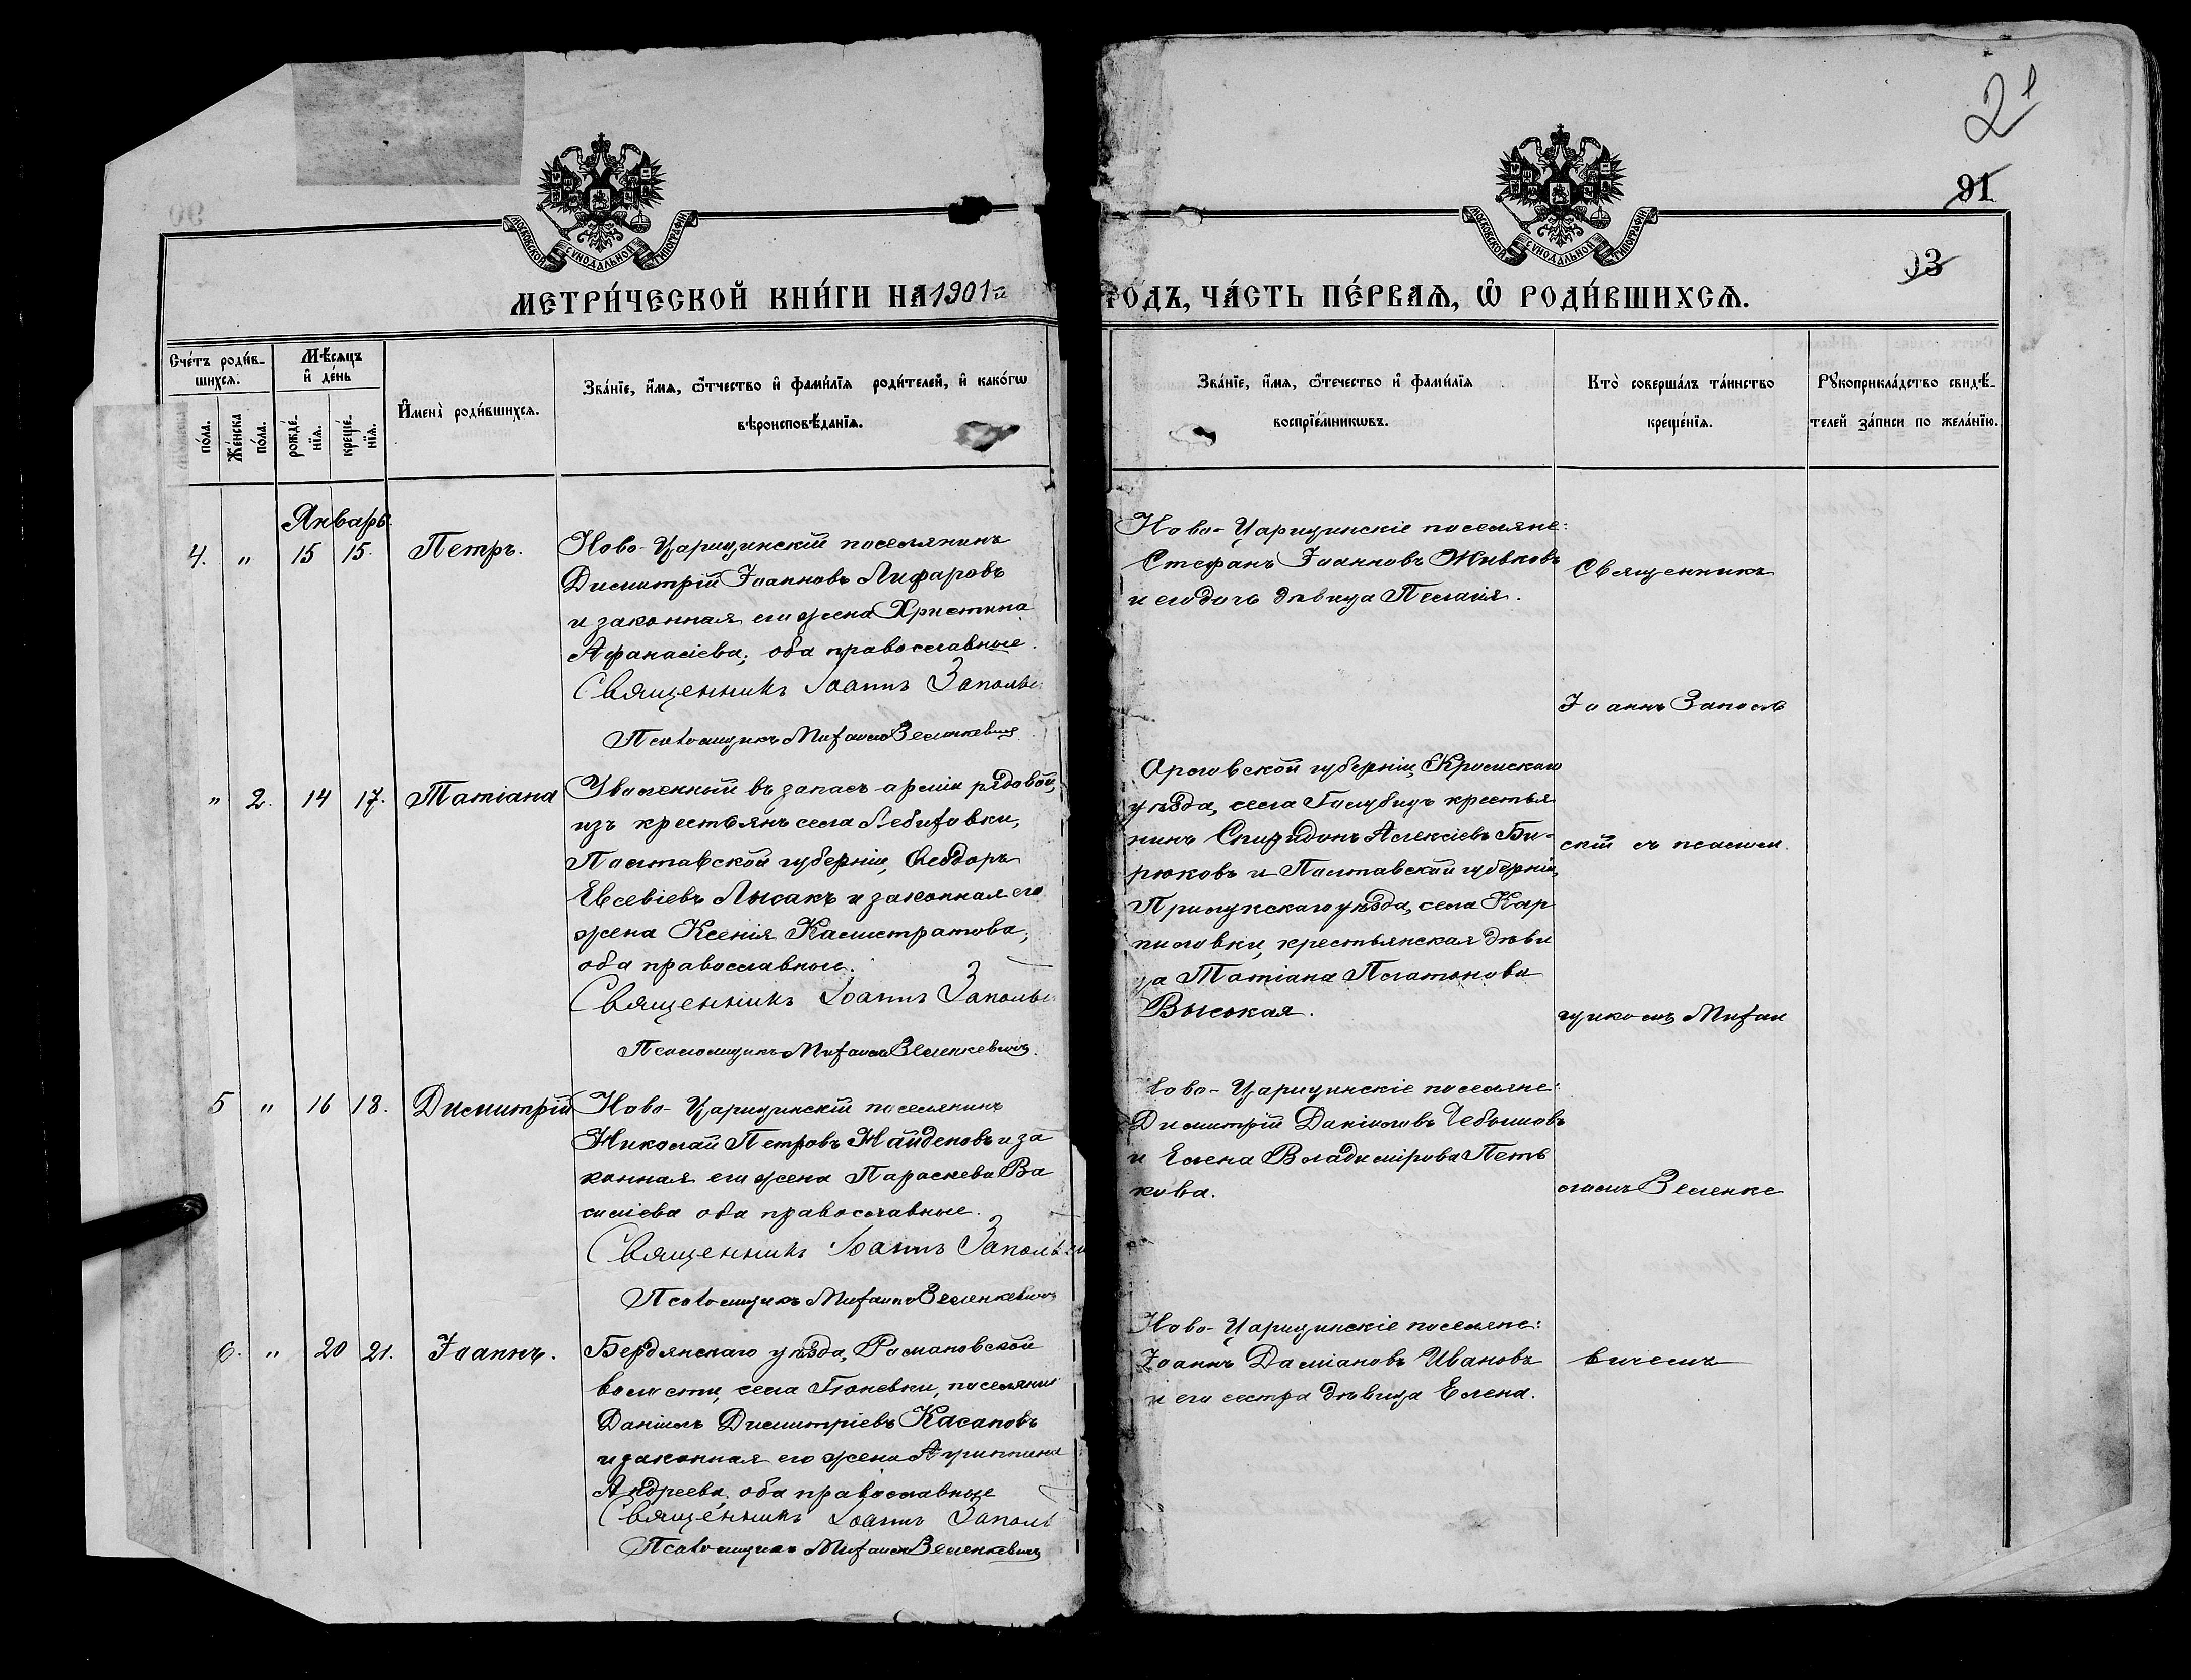 2
91
93
МОСКОВСКОЙ СУНОДАЛЬНОЙ ТИПОГРАФІИ
МОСКОВСКОЙ СУНОДАЛЬНОЙ ТИПОГРАФІИ
МЕТРИ́ЧЕСКОЙ КНИ́ГИ НА 1901й ГОДЪ, ЧА́СТЬ ПЕ́РВАЯ, Ѽ РОДИ́ВШИХСЯ.
Сче́тъ роди́в-
шихся.
Мѣсяцъ
и де́нь
пола.
Же́нска
пола.
рожде́-
нїя.
креще́-
нїя.
Имена̀ роди́вшихся.
Зва́нїе, и́мя, ѻ́тчество и фами́лїя роди́телей, и како́гѡ
вѣроисповѣ́данїя.
Зва́нїе, и́мя, ѻ́течество и фами́лїя
воспрїе́мникѡвъ.
Кто̀ соверша́лъ та́инство
креще́нїя.
Рꙋкоприкла́дство свидѣ́-
телей за́писи по жела́нїю.
Январь.
4. " 15 15. Петръ.
Ново-Царицинскій поселянинъ
Димитрій Іоанновъ Лифаровъ
и законная его жена Христина
Афанасіева; оба православные.
Священникъ Іоаннъ Заполь
Псаломщикъ Михаилъ Зеленкевичъ
Ново-Царицинскіе поселяне:
Стефанъ Іоанновъ Живковъ
и его дочь дѣвица Пелагія.
" 2. 14 17. Татіана
Уволенный въ запасъ арміи рядовой,
изъ крестьянъ села Лебиховки,
Полтавской губерніи, Ѳеодоръ
Евсевіевъ Лысакъ и законная его
жена Ксенія Калистратова;
оба православные.
Священникъ Іоаннъ Заполь
Псаломщикъ Михаилъ Зеленкевичъ.
Орловской губерніи, Кромскаго
уѣзда, села Голубицъ крестья
нинъ Спиридонъ Алексіевъ Би-
рюковъ и Полтавской губерніи,
Прилукскаго уѣзда, села Кар
пиловки, крестьянская дѣви
ца Татіана Платонова
Высокая.
5 " 16 18. Димитрій
Ново-Царицинскій поселянинъ
Николай Петровъ Найденовъ и за
конная его жена Параскева Ва
силіева оба православные.
Священникъ Іоаннъ Заполь
Псаломщикъ Михаилъ Зеленкевичъ
Ново-Царицинскіе поселяне:
Димитрій Даніиловъ Чебышовъ
и Елена Владимірова Петь
кова.
6. " 20 21. Іоаннъ.
Бердянскаго уѣзда, Романовской
волости, села Гюневки, поселянинъ
Даніилъ Димитріевъ Касаповъ
и законная его жена Агрипина
Андреева, оба православные
Священникъ Іоаннъ Заполь
Псаломщикъ Михаилъ Зеленкевичъ
Ново-Царицинскіе поселяне:
Іоаннъ Даміановъ Ивановъ
и его сестра дѣвица Елена.
Священникъ
Іоаннъ Заполь
скій съ псалом
щикомъ Михаи
ломъ Зеленке
вичемъ